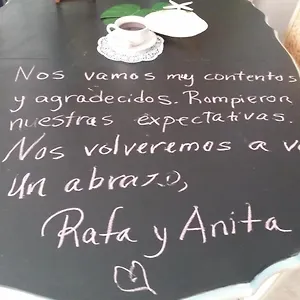 Nos vamos muy contentos
y agradecidos. Rompieron
nuestras expectativas.
Nos volveremos a
Un abrazo,
Rafa y Anita